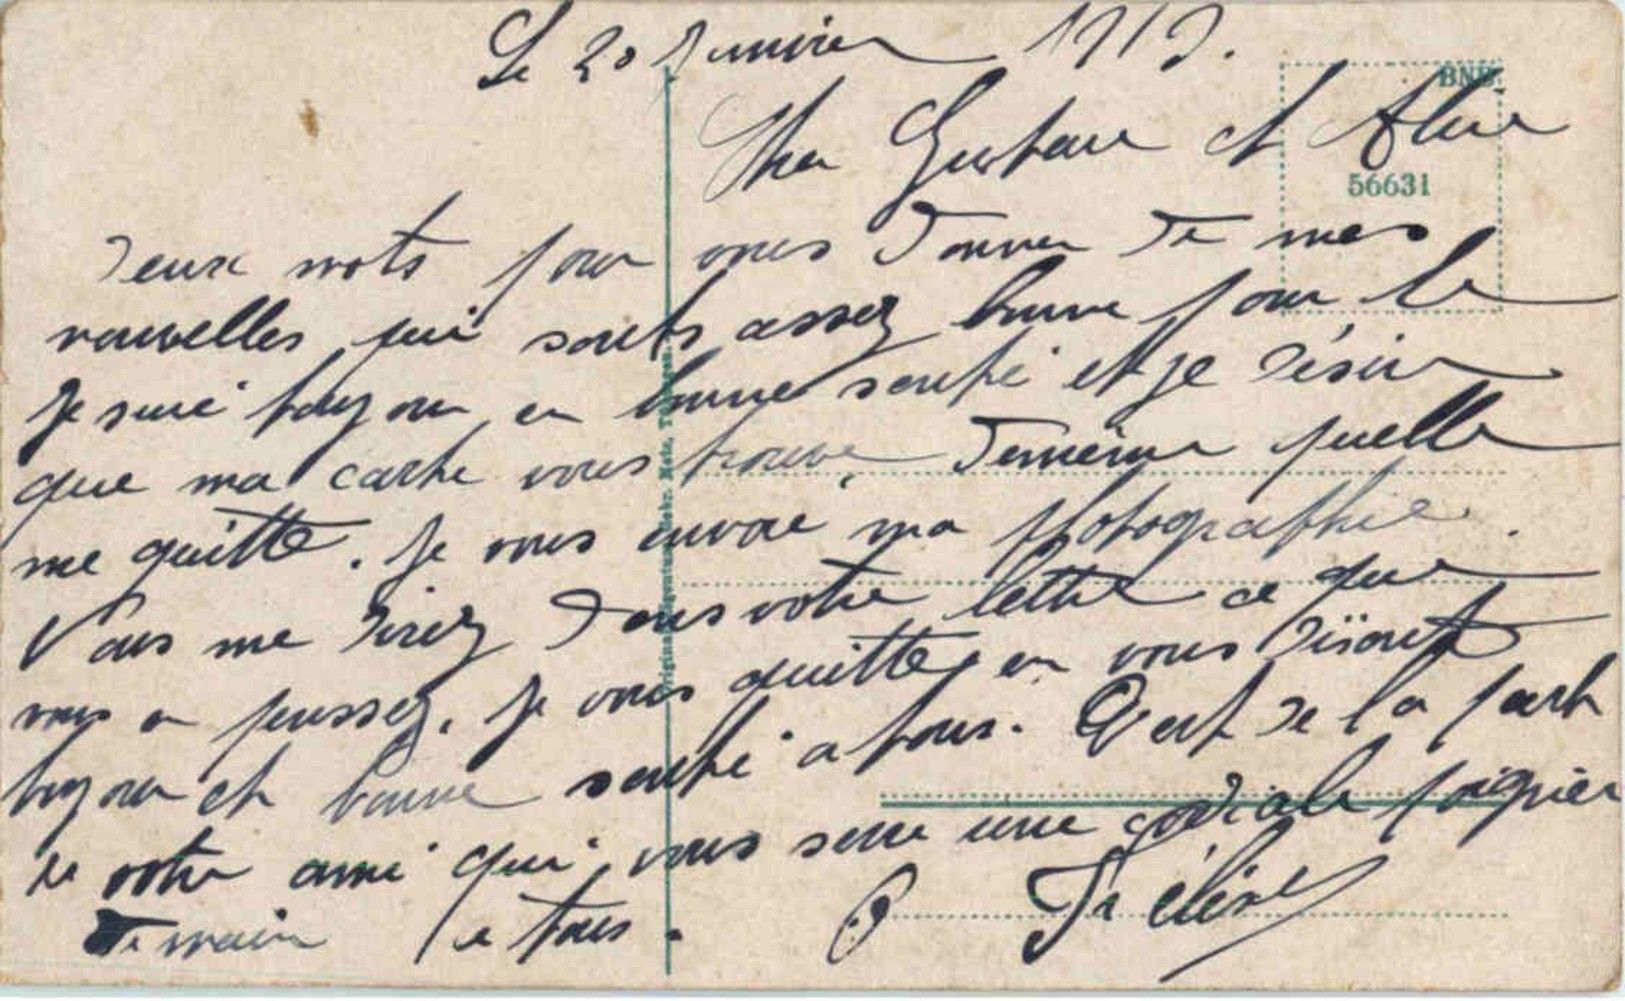 Le 20 Janvier 1919.
Cher Gustave et
BNK
56631
Deux mots pour vous donner de mes
nouvelles qui sonts assez bonne pour le
Je suis toujour en bonne santé et je désire
que ma carte vous trouve demême quelle
me quitte. Je vous envoie ma photographie.
Vous me direz dans votre lettre ce que
vous en pensez. Je vous quitte en vous disant
toujour et bonne santé a tous. C'est de la part
de votre ami qui vous serre une cordiale poignier
de main a tous.